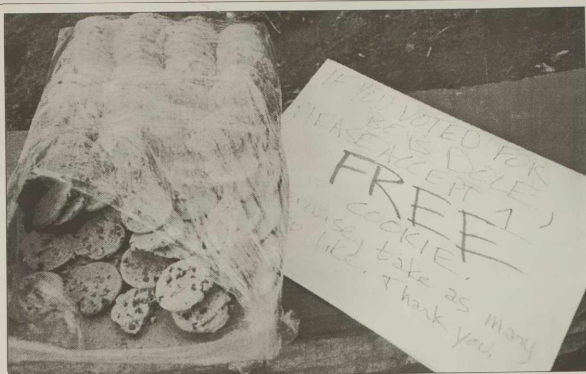 IF YOU VOTED FOR
BOB DOLE,
PLEASE ACCEPT 1
FREE
COOKIE.
take as many
like. Thank you.